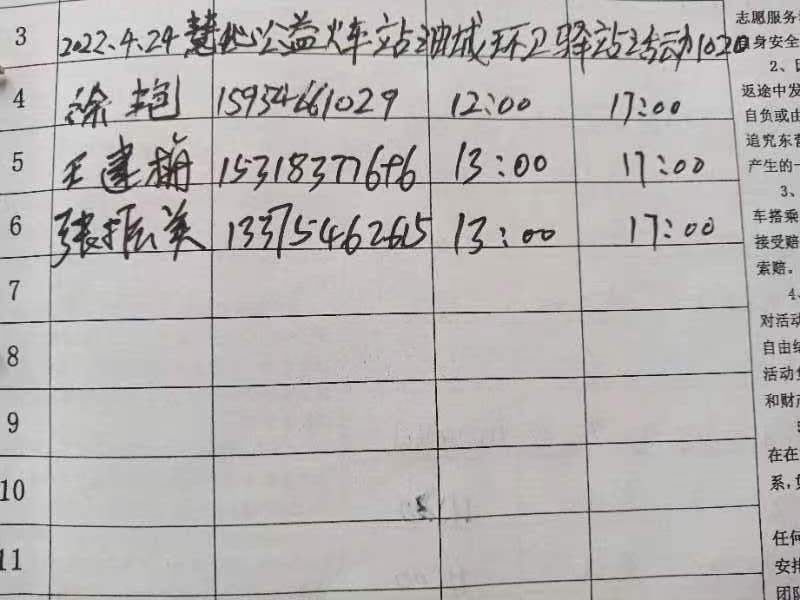 3 2022.4.24 慧心公益火车站油城环卫驿站活动1020
4 徐艳 15954661029 12:00 17:00
5 王建梅 15318377696 13:00 17:00
6 张振美 13375462665 13:00 17:00
7
8
9
10
11
志愿服务
自身安全
2、
返途中发
自负或由
追究东营
产生的一
3、
车搭乘
接受赔
索赔。
4、
对活动
自由结
活动
和财产
在在
系,
任何
安排
团队